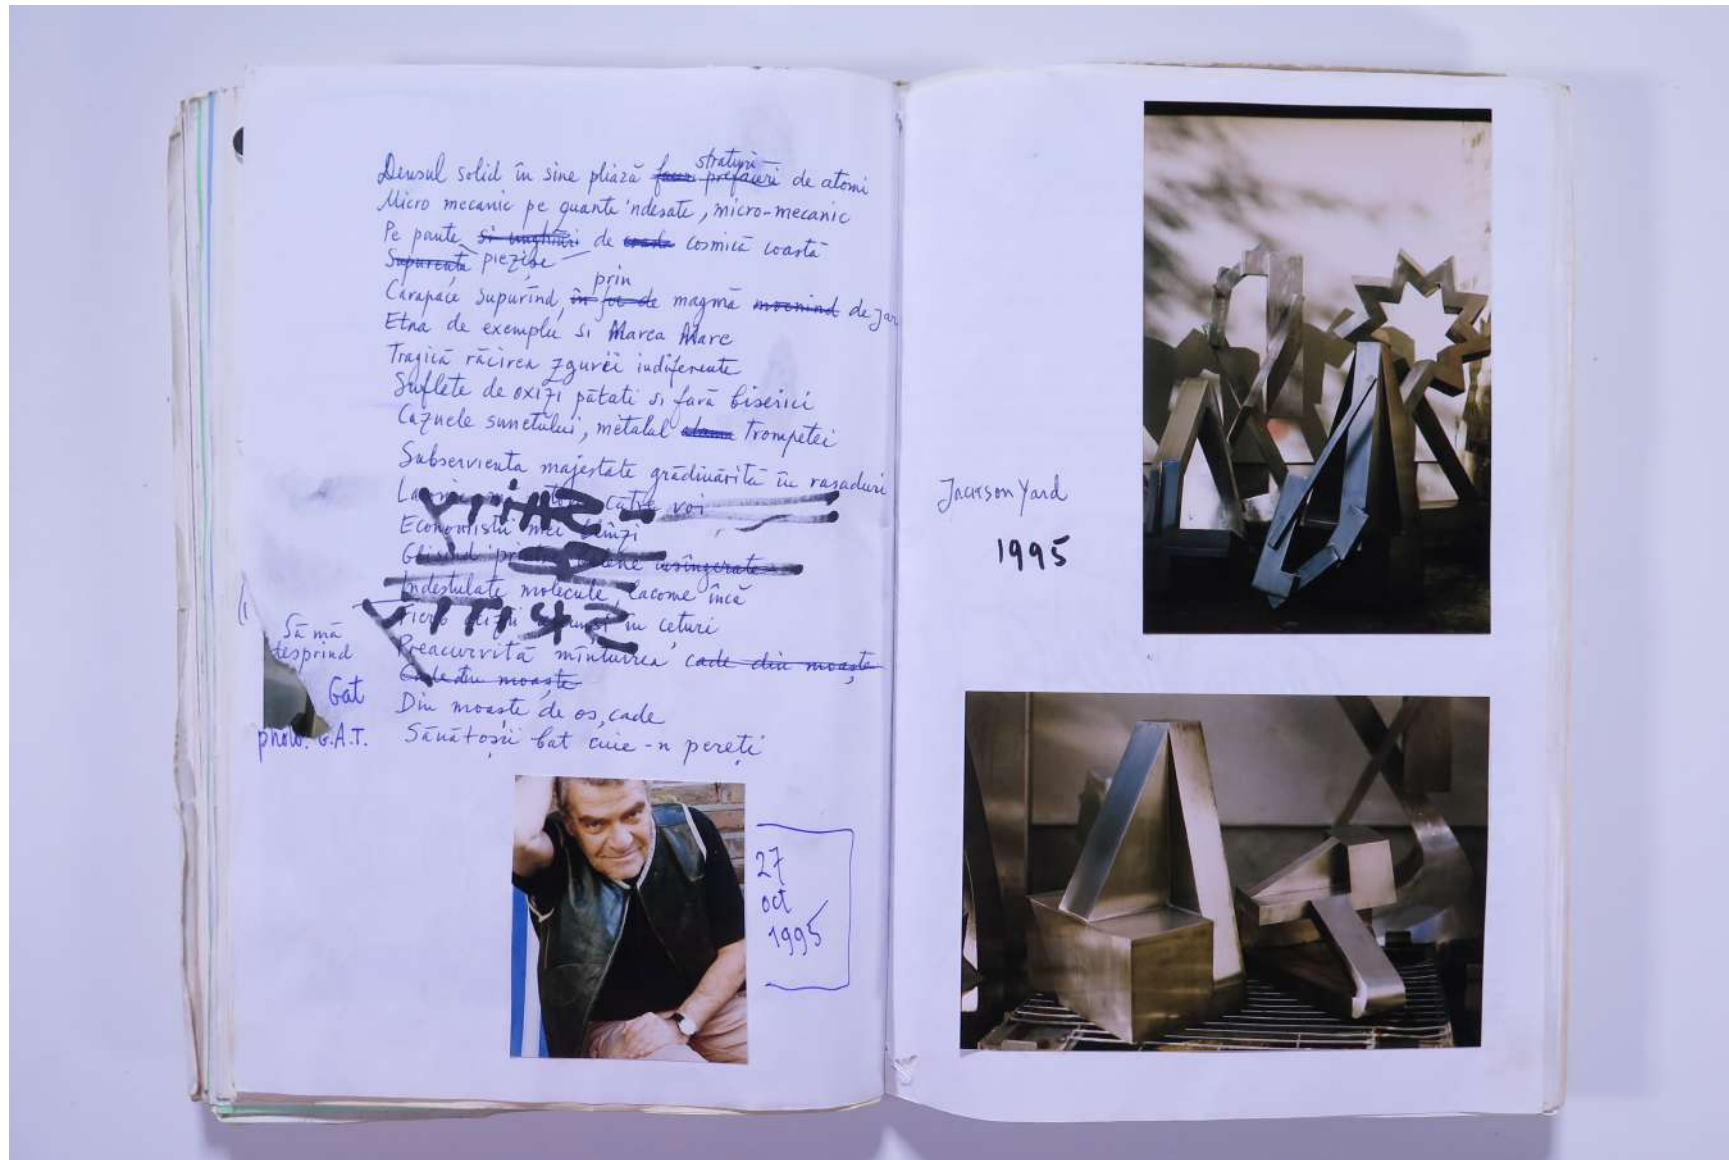 straturi
Densul solid în sine pliază prefaceri de atomi
Micro mecanic pe quante 'ndesate, micro-mecanic
Pe pante si unghiuri de coasta cosmică coastă
Supurcata piezise
prin
Carapace supurînd, în foc de magmă mocnind de jar
Etna de exemplu si Marea Mare
Tragică răcirea zgurei indiferente
Suflete de oxizi pătati si fară biserici
Caznele sunetului, metalul alama trompetei
Subservienta majestate grădinărită în rasaduri
către voi
Economistii mei
însîngerate
Indestulate molecule, lacome încă
în ceturi
Preacurvită mîntuirea cade din moaște
Cade din moaște
Din moaște de os, cade
Sănătoșii bat cuie-n pereți
Să mă
desprind
Gat
photo. G.A.T.
27
oct
1995
Jackson Yard
1995